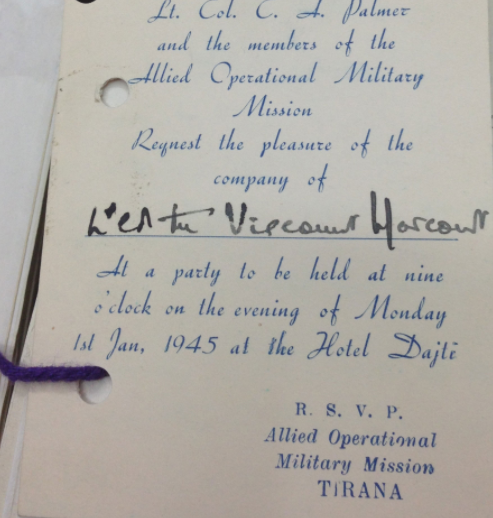 Lt. Col. C. A. Palmer
and the members of the
Allied Operational Military
Mission
Reqnest the pleasure of the
company of
Viscount Harcourt
At a party to be held at nine
o'clock on the evening of Monday
1st Jan, 1945 at the Hotel Dajti
R. S. V. P.
Allied Operational
Military Mission
TIRANA